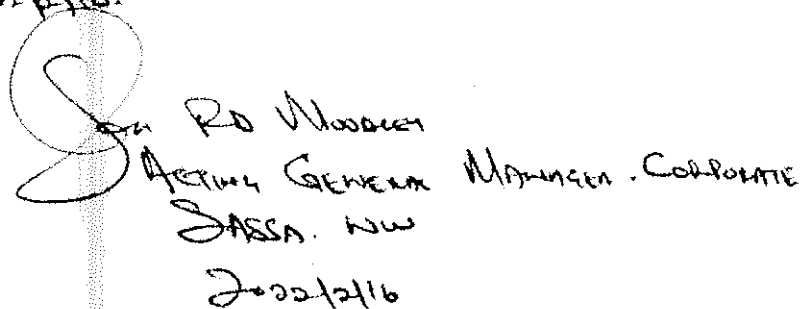 RD
Acting General Manager. Corporate
SASSA. NW
2022/2/16